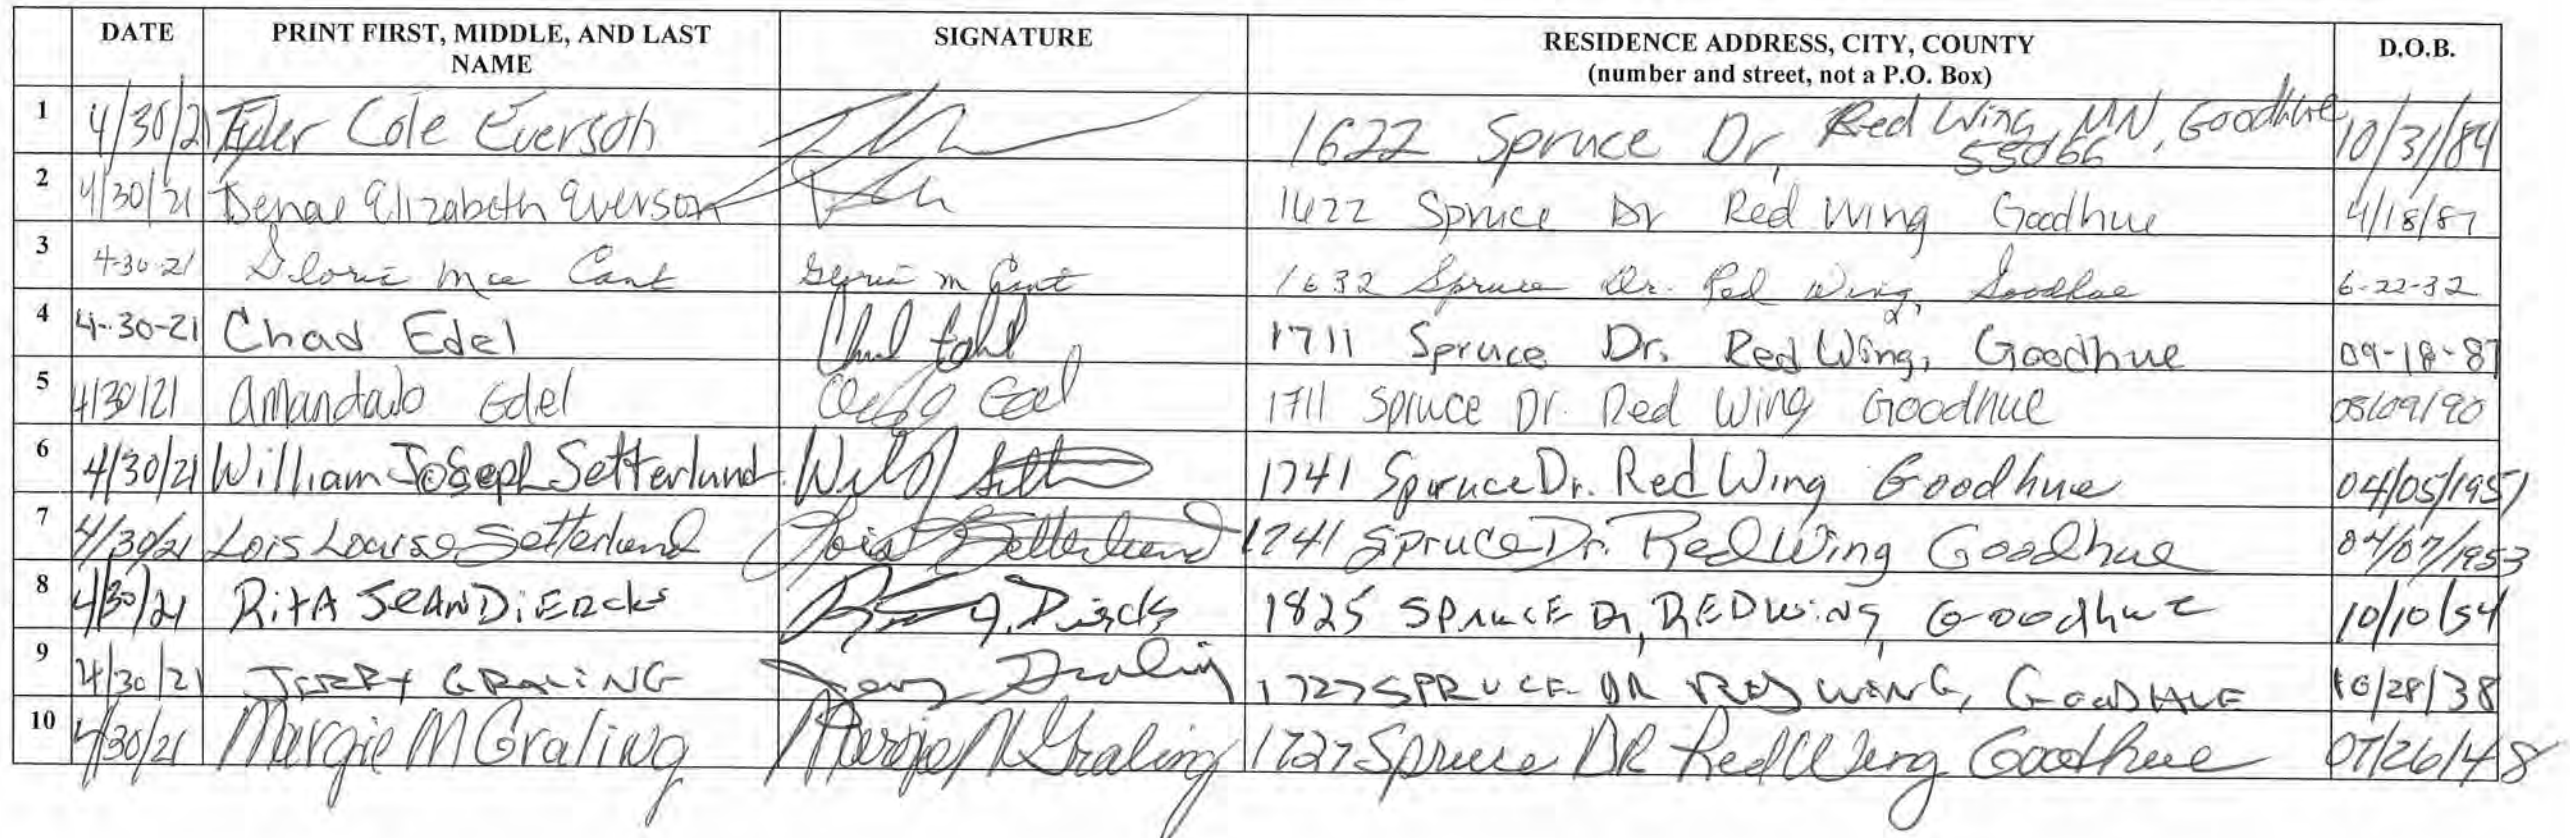 DATE PRINT FIRST, MIDDLE, AND LAST NAME SIGNATURE RESIDENCE ADDRESS, CITY, COUNTY (number and street, not a P.O. Box) D.O.B.
1 4/30/21 Tyler Cole Everson 1622 Spruce Dr, Red Wing, MN, Goodhue 55066 10/31/84
2 4/30/21 Denae Elizabeth Everson 1622 Spruce Dr Red Wing Goodhue 4/18/87
3 4-30-21 Gloria Mae Cant Gloria M Cant 1632 Spruce Dr. Red Wing, Goodhue 6-22-32
4 4-30-21 Chad Edel Chad Edel 1711 Spruce Dr. Red Wing, Goodhue 09-18-87
5 4/30/21 Amanda Jo Edel Edel 1711 Spruce Dr. Red Wing Goodhue 08/09/90
6 4/30/21 William Joseph Setterlund 1741 Spruce Dr. Red Wing Goodhue 04/05/1951
7 4/30/21 Lois Louise Setterlund Lois Setterlund 1741 Spruce Dr. Red Wing Goodhue 04/07/1953
8 4/30/21 RitA JeAN DiERcks J. Diercks 1825 SPRUCE Dr, REDWiNg, Goodhue 10/10/54
9 4/30/21 JERRY GRALiNG Jerry Graling 1727 SPRUCE DR RED WING, GOODHUE 10/28/38
10 4/30/21 Margie M Graling Margie M Graling 1727 Spruce DR Red Wing Goodhue 07/26/48